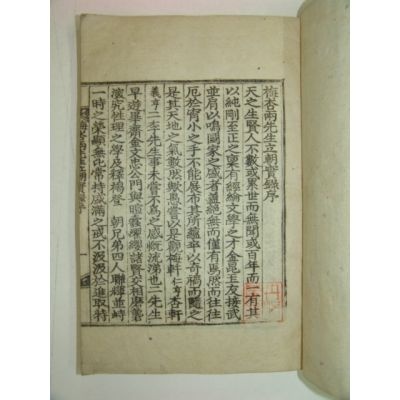 梅杏兩先生立朝實錄序
天之生賢人不數或累世而無聞或百年而一有其
以純剛至正之稟有經綸文學之才金昆玉友接武
並肩以鳴國家之盛者盖絕無而僅有焉然而往往
厄於宵小之手不能展布其所蘊卒以奇禍而隨
是其天地之氣數然歟嘗以是觀梅軒仁亨杏軒
義亨二李先生事未嘗不爲之感慨流涕也二先生
早遊畢齋金文忠公門與暄蠹濯纓諸賢交相磨礱
演究性理之學及釋褐登 朝兄弟四人聯輝並峙
一時之榮顯無比常持盛滿之戒不汲汲於進取特